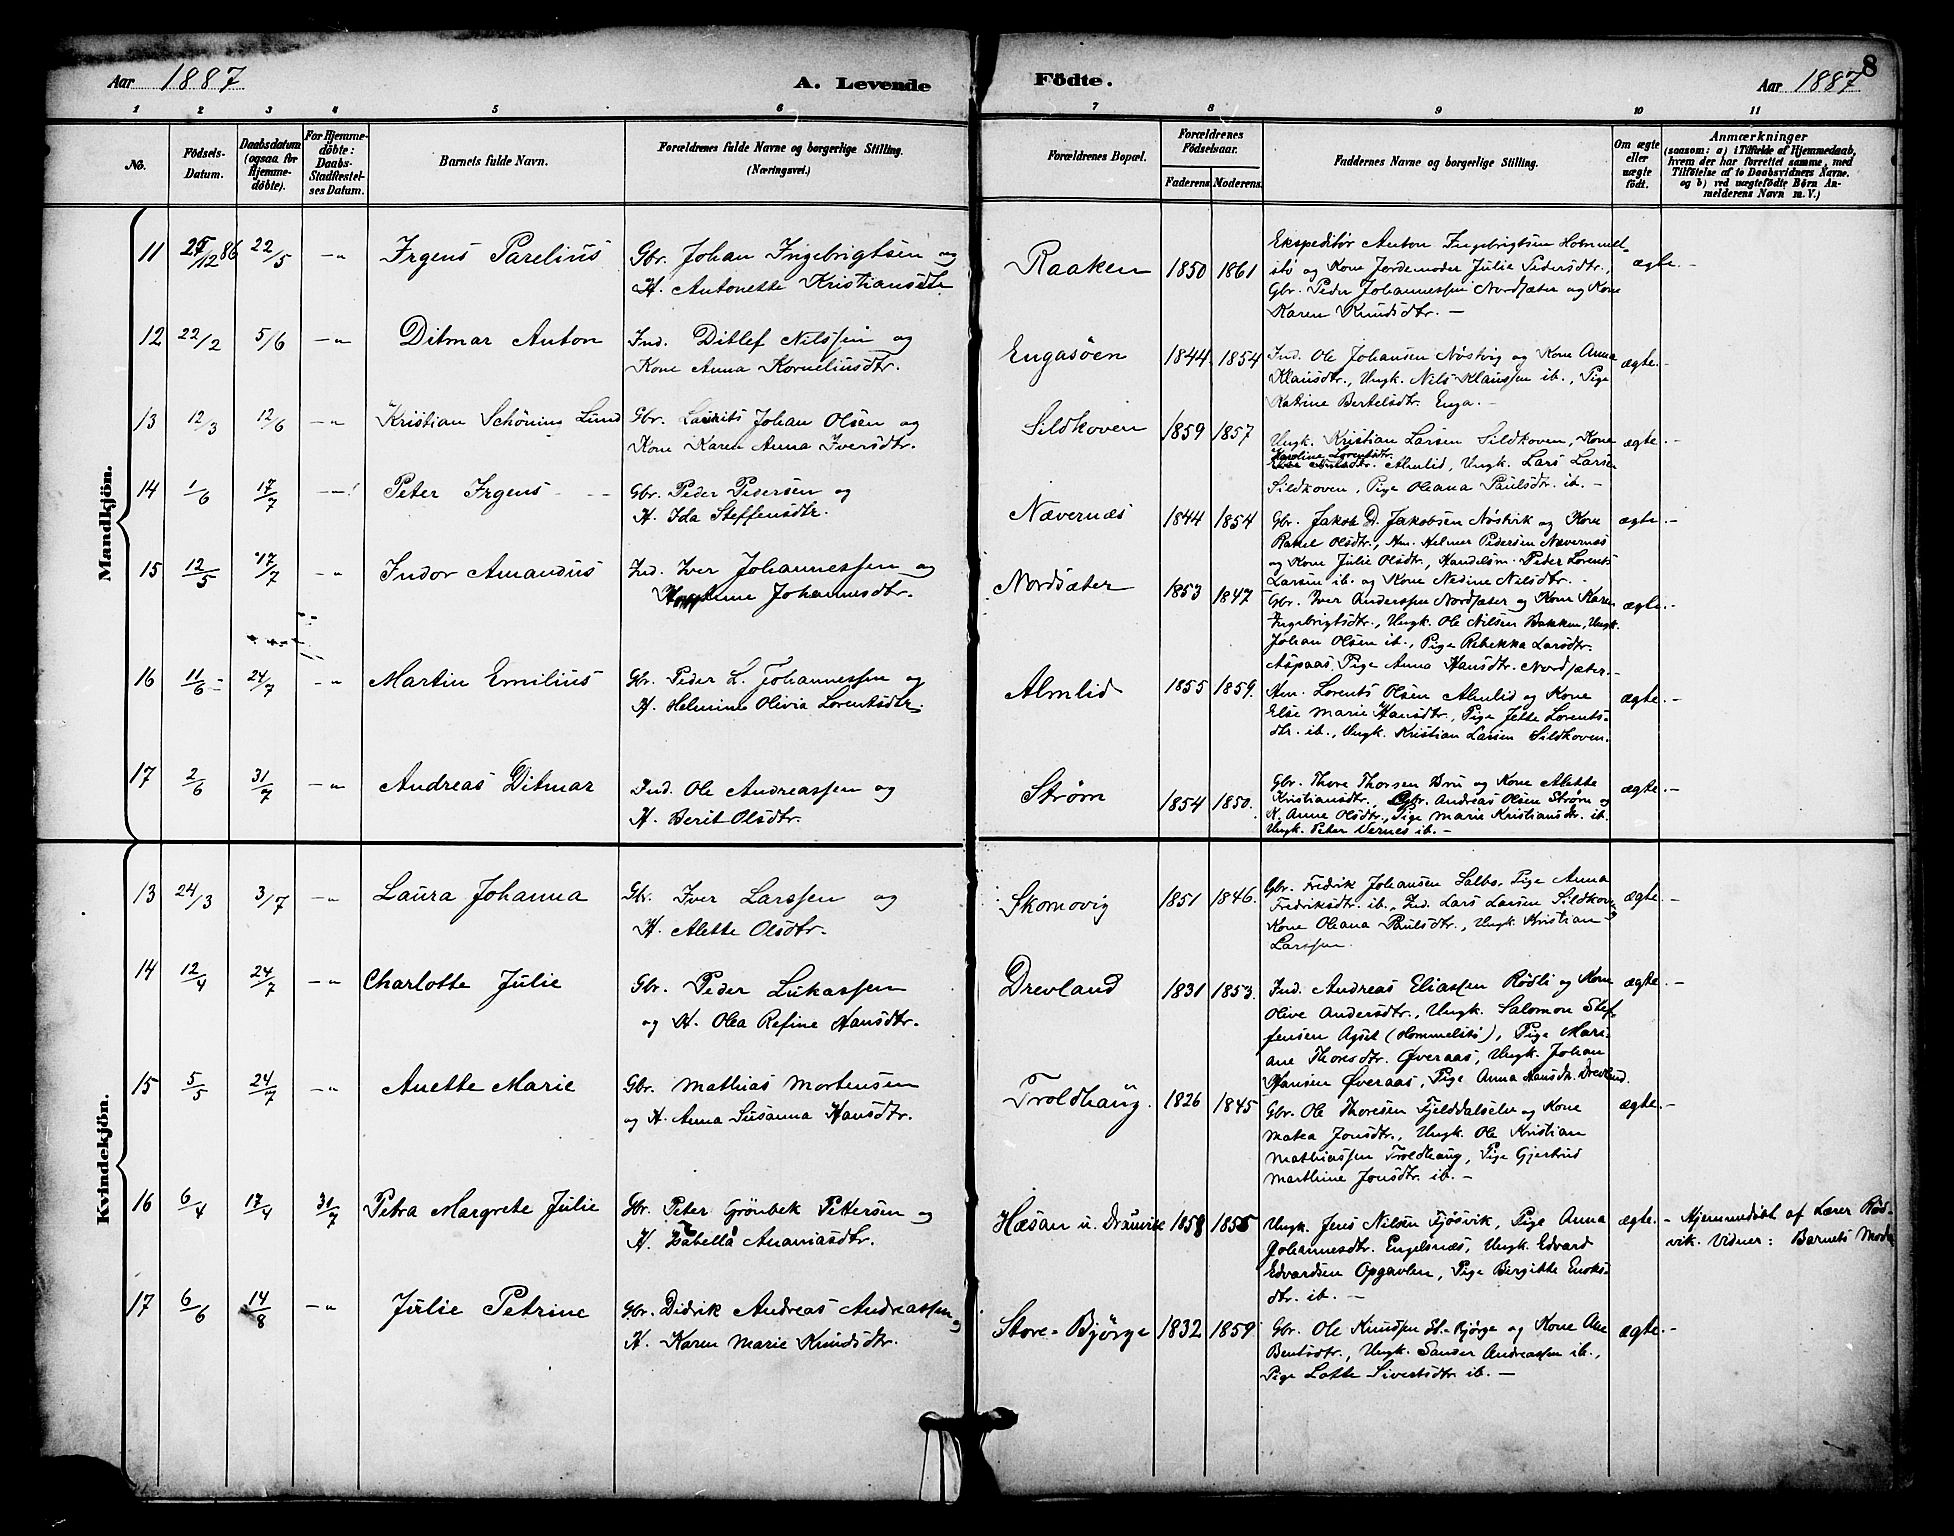 Aar 1887 A. Levende
Födte. Aar 1887 8
1 2 3 4 5 6
7 8 9 10 11
No.
Födsels-Datum.
Daabsdatum (ogsaa for Hjemme-döbte).
For Hjemme-döbte: Daabs-Stadfæstel-ses Datum.
Barnets fulde Navn.
Forældrenes fulde Navne og borgerlige Stilling.
(Næringsvei.)
Forældrenes Bopæl.
Forældrenes Födselsaar.
Faderens. Moderens.
Faddernes Navne og borgerlige Stilling.
Om ægte eller uægte födt.
Anmærkninger
(saasom: a) i Tilfælde af Hjemmedaab,
hvem der har forrettet samme, med
Tilföielse af to Daabsvidners Navne.
og b) ved uægtefödte Börn An-
melderens Navn m. V.)
Mandkjön.
11 25/12 86 22/5 -"- Irgens Parelius
Gbr. Johan Ingebrigtsen og
H. Antonette Kristiansdtr
Raaken 1850 1861
Ekspeditør Anton Ingebrigtsen Hommel-
stø og Kone Jordemoder Julie Pedersdtr.,
Gbr. Peder Johannessen Nordsæter og Kone
Karen Knudsdtr. —
ægte. -
12 22/2 5/6 -"- Ditmar Anton
Ind. Ditlef Nilssen og
Kone Anna Korneliusdtr.
Engasøen 1844. 1854
Ind. Ole Johansen Nøstvig og Kone Anna
Klausdtr., Ungk. Nils Klaussen ib., Pige
Katrine Bertelsdtr. Enga. —
ægte. -
13 12/3 12/6 -"- Kristian Schöning Lund
Gbr. Laurits Johan Olsen og
Kone Karen Anna Iversdtr.
Sildkoven 1859 1857
Ungk. Kristian Larsen Sildkoven, Kone
Karoline Lorentsdtr.
Almlid, Ungk. Lars Larsen
Sildkoven, Pige Oleana Paulsdtr. ib. —
ægte. -
14 1/6 17/7 -"- Peter Irgens - -
Gbr. Peder Pedersen og
H. Ida Steffensdtr.
Nævernæs 1844 1854
Gbr. Jakob D. Jakobsen Nøstvik og Kone
Rakel Olsdtr., Hm. Helmer Pedersen Nævernæs
og Kone Julie Olsdtr., Handelsm. Peder Lorents
Larsen ib. og Kone Nedine Nilsdtr. -
ægte. -
15 12/5 17/7 -"- Indor Amandus
Ind. Iver Johannessen og
Johannesdtr.
Nordsæter 1853 1847
Gbr. Iver Anderssen Nordsæter og Kone Karen
Ingebrigtsdtr., Ungk. Ole Nilsen Bakken, Ungk.
Johan Olsen ib., Pige Rebekka Larsdtr.
Aspaas, Pige Anna Hansdtr. Nordsæter. -
ægte. -
16 11/6 - 24/7 -"- Martin Emilius
Gbr. Peder L. Johannessen og
H. Helmine Olivia Lorentsdtr.
Almlid 1855 1859.
Hm. Lorents Olsen Almlid og Kone
Else Marie Hansdtr., Pige Jette Lorents-
dtr. ib., Ungk. Kristian Larsen Sildkoven.
ægte. -
17 2/6 31/7 -"- Andreas Ditmar
Ind. Ole Andreassen og
H. Berit Olsdtr.
Strøm 1854 1850.
Gbr. Thore Thorsen Bru og Kone Alette
Kristiansdtr., Gbr. Andreas Olsen Strøm og
H. Anne Olsdtr., Pige Marie Kristiansdtr. ib.
Ungk. Peter Vernes ib. —
ægte. -
Kvindekjön.
13 24/3 3/7 -"- Laura Johanna
Gbr. Iver Larssen og
H. Alette Olsdtr.
Skomovig 1851 1846.
Gbr. Fredrik Johansen Salbo, Pige Anna
Fredriksdtr. ib., Ind. Lars Larsen Sildkoven,
Kone Oleana Paulsdtr., Ungk. Kristian
Larssen.
ægte. -
14 12/4 24/7 -"- Charlotte Julie
Gbr. Peder Lukassen
og H. Olea Refine Hansdtr.
Drevland 1831 1853.
Ind. Andreas Eliassen Rödli og Kone
Olive Andersdtr., Ungk. Salomon Stef-
fensen Agset (Hommelstø), Pige Mari-
ane Thoresdtr. Øveraas, Ungk. Johan
Hansen Øveraas, Pige Anna Hansdtr. Drevland.
ægte. -
15 5/5 24/7 -"- Anette Marie
Gbr. Mathias Mortensen
og H. Anna Susanna Hansdtr.
Troldhaug. 1826 1845
Gbr. Ole Thoresen Fjelddalselv og Kone
Matea Jonsdtr., Ungk. Ole Kristian
Mathiassen Troldhaug, Pige Gjertrud
Marthine Jonsdtr. ib. —
ægte. -
16 6/4 17/4 31/7 Petra Margrete Julie
Gbr. Peter Grönbek Pettersen og
H. Isabella Ananiasdtr.
Hæsan u. Drauvik 1858 1855
Ungk. Jens Nilsen Fjøsvik, Pige Anna
Johannesdtr. Engelsnæs, Ungk. Edvard
Edvardsen Opgavlen, Pige Bergitte Enoks-
dtr. ib. —
ægte. - Hjemmedøbt af Lærer Rød-
vik. Vidner: Barnets Moder
17 6/6 14/8 -"- Julie Petrine
Gbr. Didrik Andreas Andreassen og
H. Karen Marie Knudsdtr.
Store-Bjørge 1832 1859
Gbr. Ole Knudsen St.-Bjørge og Kone Ane
Bentsdtr., Ungk. Sander Andreassen ib.,
Pige Lotte Sivertsdtr. ib. —
ægte. -